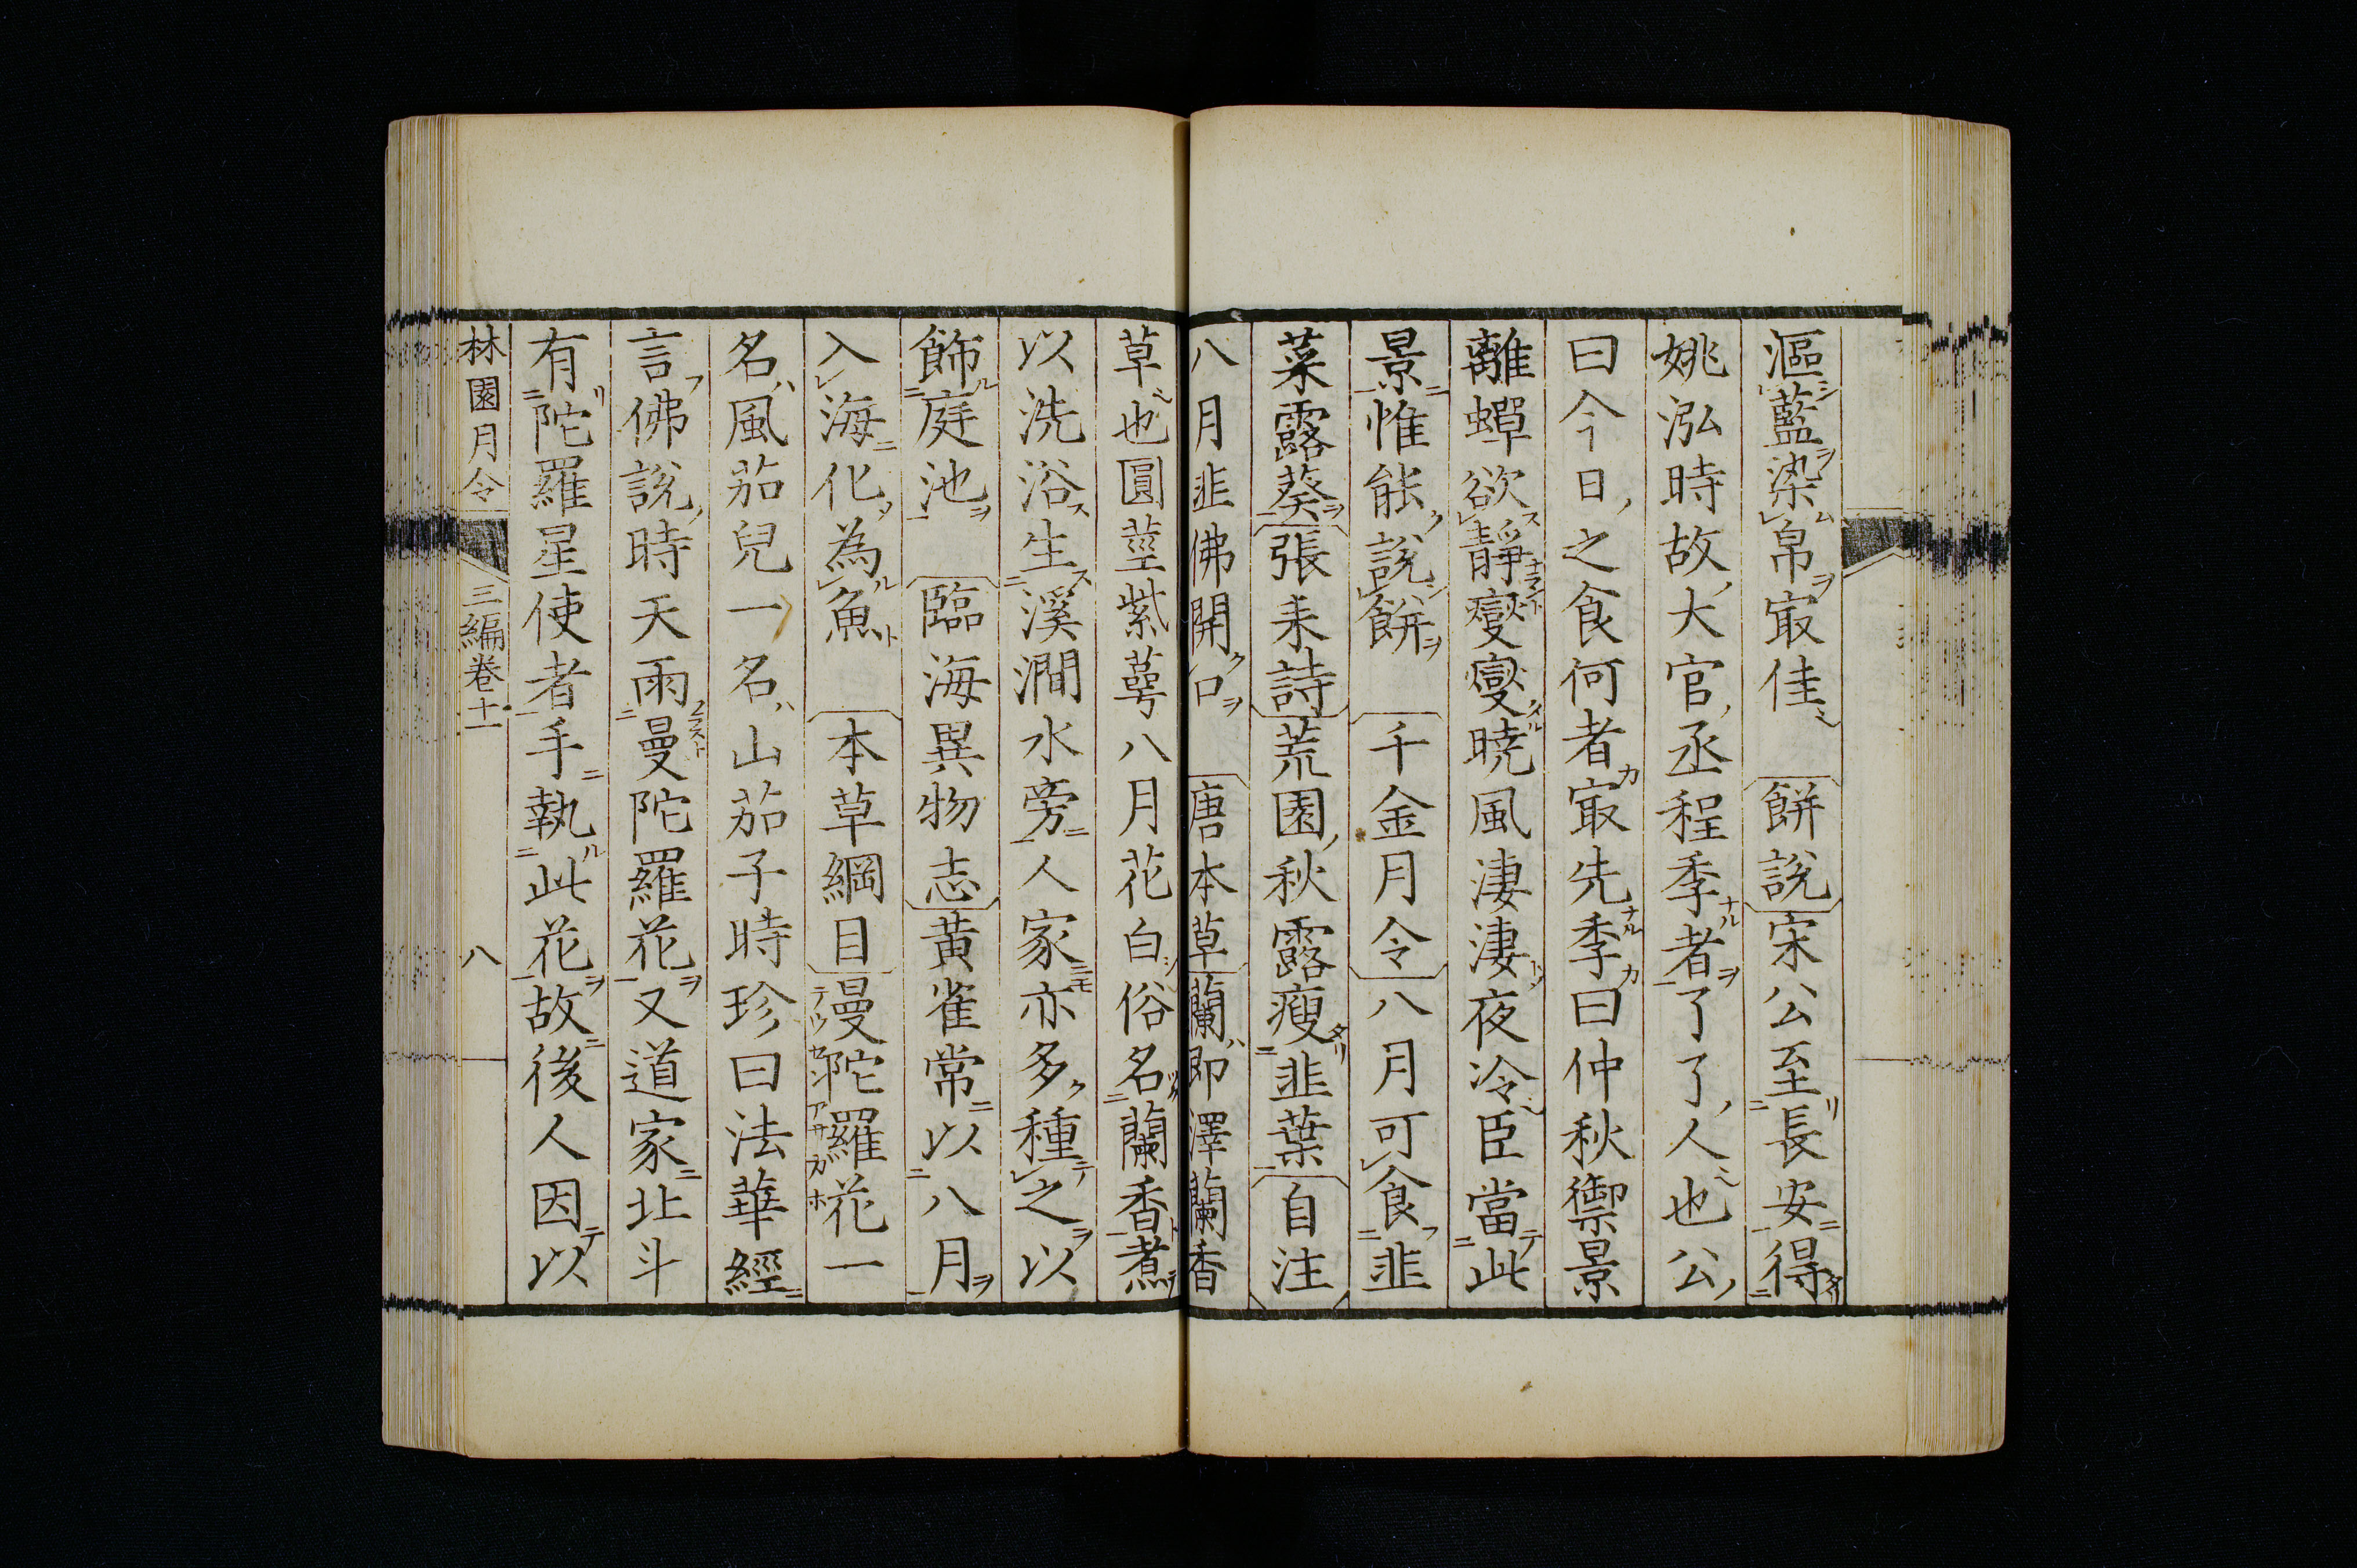 漚藍染帛㝡佳　〔餅說〕宋公至長安得
姚泓時故大官丞程季者了了人也公
曰今日之食何者㝡先季曰仲秋禦景
離蟬欲靜燮燮曉風淒淒夜冷臣當此
景惟能說餅　〔千金月令〕八月可食韭
菜露葵〔張耒詩〕荒園秋露瘦韭葉〔自注〕
八月韭佛開口　〔唐本草〕蘭即澤蘭香
草也圓莖紫萼八月花白俗名蘭香煮
以洗浴生溪澗水旁人家亦多種之以
飾庭池　〔臨海異物志〕黃雀常以八月
入海化為魚　〔本草綱目〕曼陀羅花一
名風茄兒一名山茄子時珍曰法華經
言佛說時天雨曼陀羅花又道家北斗
有陀羅星使者手執此花故後人因以
林園月令　三編卷十一　八